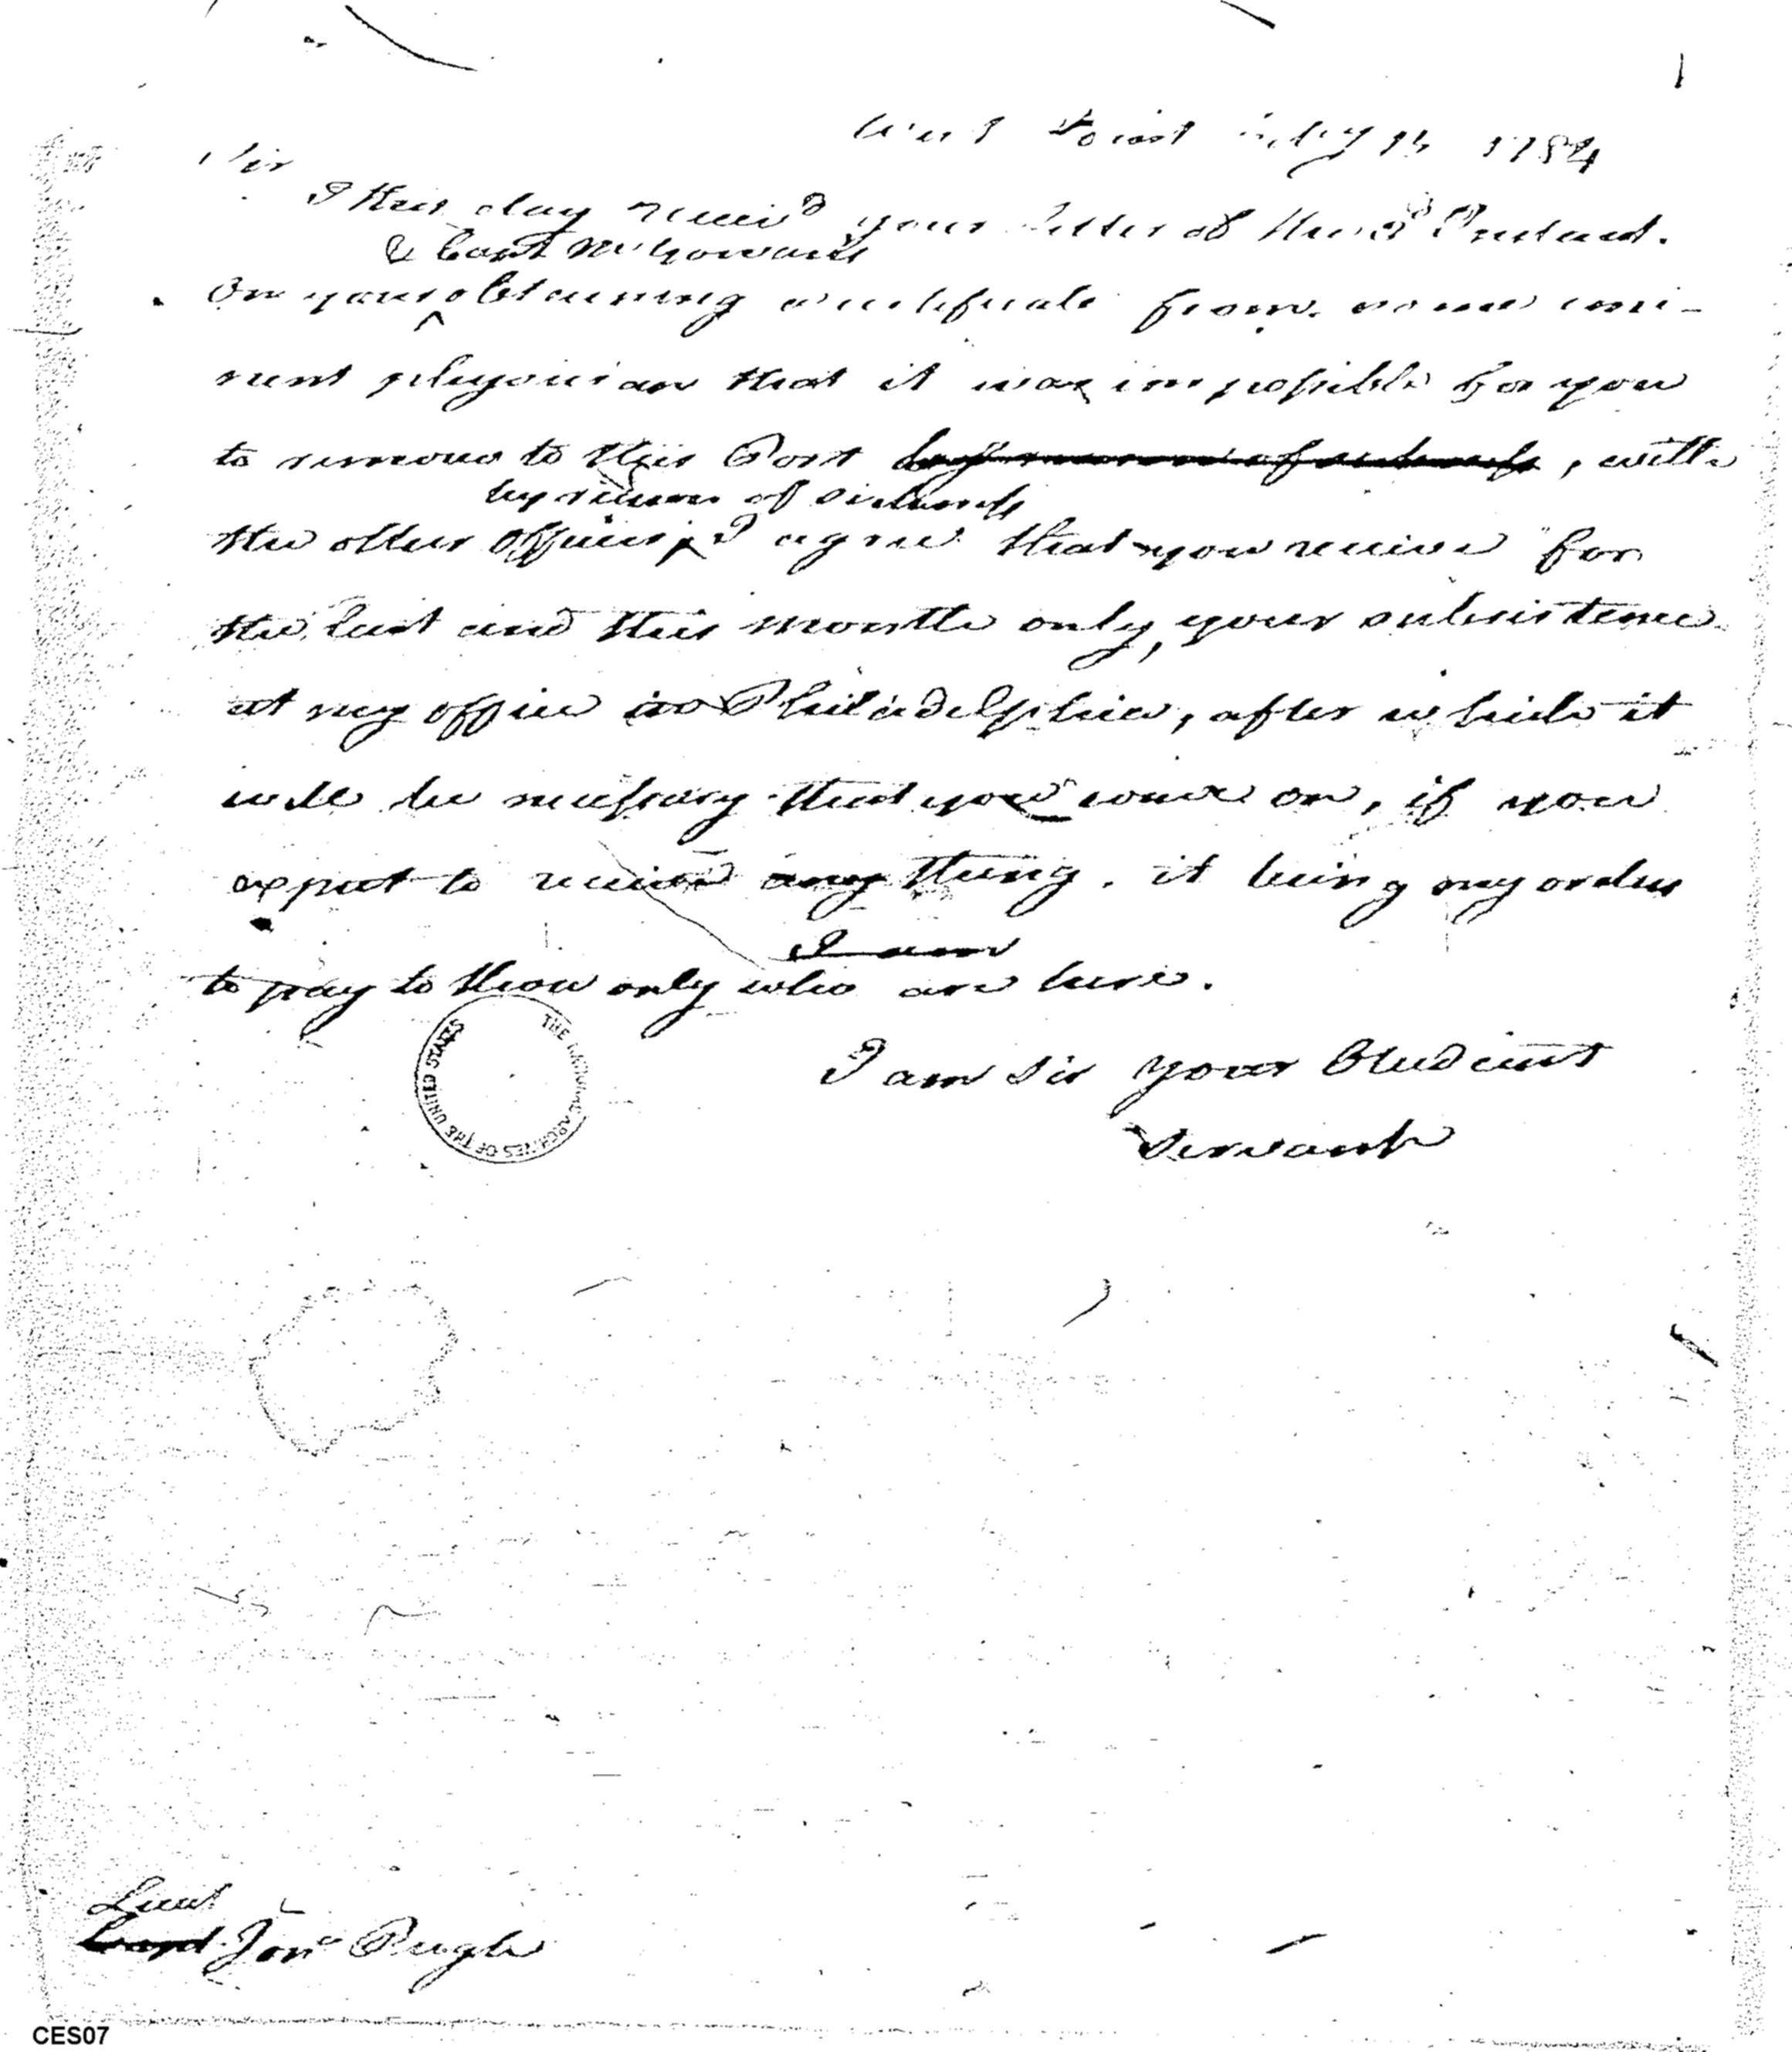 West Point July 14 1784
Sir
I this day receiv'd your letter of the 3d Instant.
& Capt McGowans
On your obtaining a certificate from some emi-
nent physician that it was impossible for you
to remove to this Post by reason of sickness, with
by reason of sickness
the other officers, I agree that you receive for
the last and this month only, your subsistence
at my office in Philadelphia, after which it
will be necessary that you come on, if you
expect to receive any thing, it being my orders
I am
to pay to those only who are here.
I am Sir your Obedient
Servant
THE NATIONAL ARCHIVES OF THE UNITED STATES
Lieut
Capt Jon Pugh
CES07